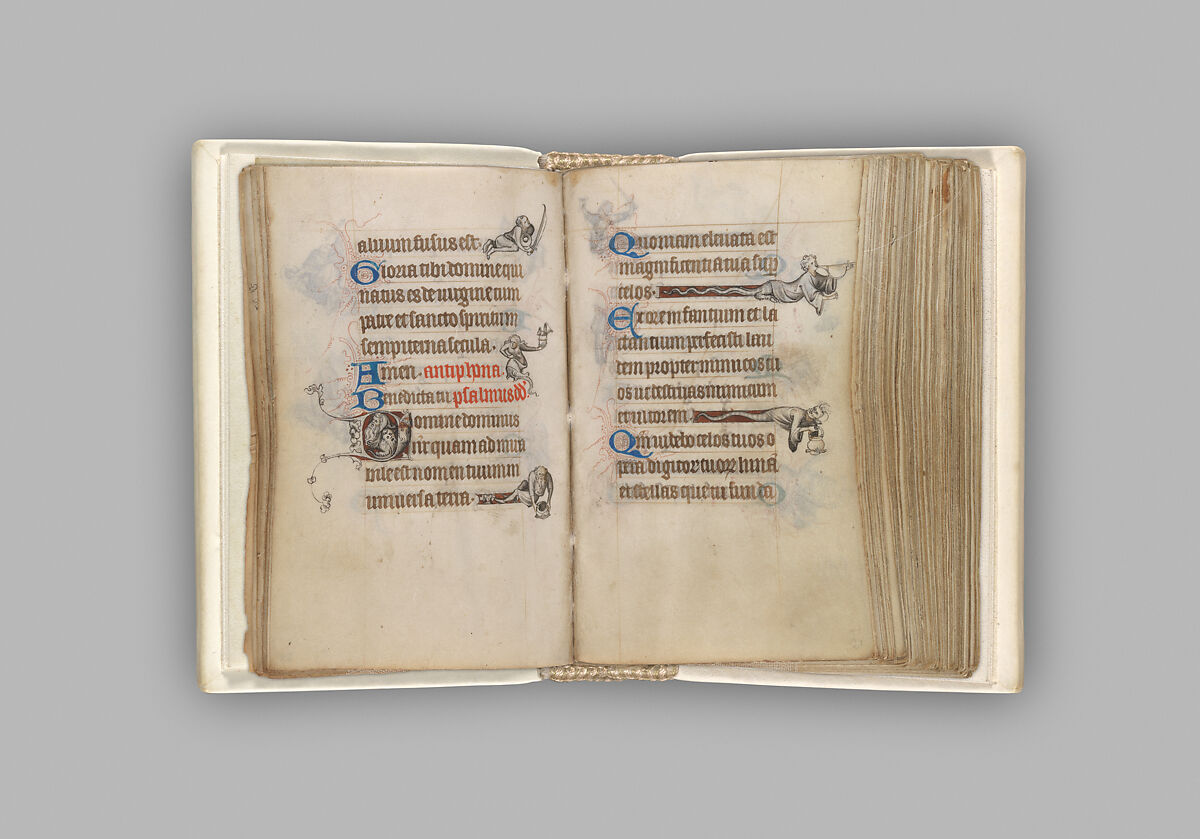 aluum fusus est.
Gloria tibi domine qui
natus es de uirgine cum
patre et sancto spiritum
sempiterna secula.
Amen. antiphona
Benedicta tu psalmus dd'.
Domine dominus
nr quam admira
bile est nomen tuum in
uniuersa terra.
Quoniam eleuata est
magnificentia tua sup
celos.
Ex ore infantium et la
ctantium perfecisti lau
tem propter inimicos tu
os ut destruas inimicum
et ultorem.
Qm uidebo celos tuos o
pera digitor tuor luna
et stellas que tu funda